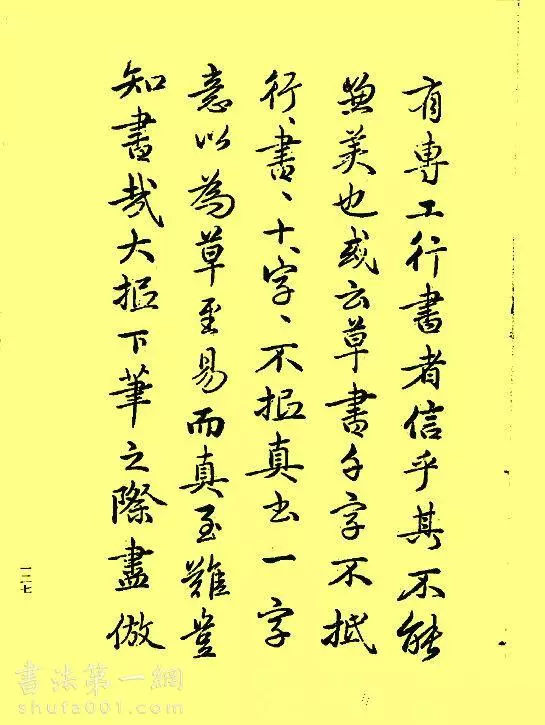 有專工行書者信乎其不能
兼美也或云草書千字不抵
行、書、十、字、不抵真书一字
意以為草至易而真至難豈
知書哉大抵下筆之際盡倣
一二七
書法第一網
shufa001.com